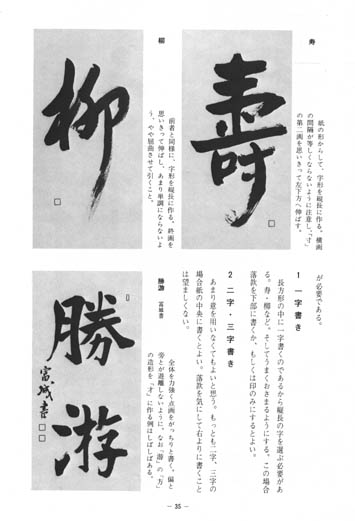 寿
紙の形からして、字形を縦長に作る。横画
の間隔が等しくならないように注意し、「寸」
の第二画を思いきって左下方へ伸ばす。
壽
柳
前者と同様に、字形を縦長に作る。終画を
思いきって伸ばし、あまり単調にならないよ
う、やや屈曲させて引くこと。
柳
が必要である。
1 一字書き
長方形の中に一字書くのであるから縦長の字を選ぶ必要があ
る。寿・柳など。そしてうまくおさまるようにする。この場合
落款を下部に書くか、もしくは印のみにするとよい。
2 二字・三字書き
あまり意を用いなくてもよいと思う。もっとも二字、三字の
場合紙の中央に書くとよい。落款を気にして右よりに書くこと
は望ましくない。
勝游 富城書
全体を力強く点画をがっちりと書く。偏と
旁とが遊離しないように。なお「游」の「方」
の造形を「才」に作る例はしばしばある。
勝游
富城書
— 35 —